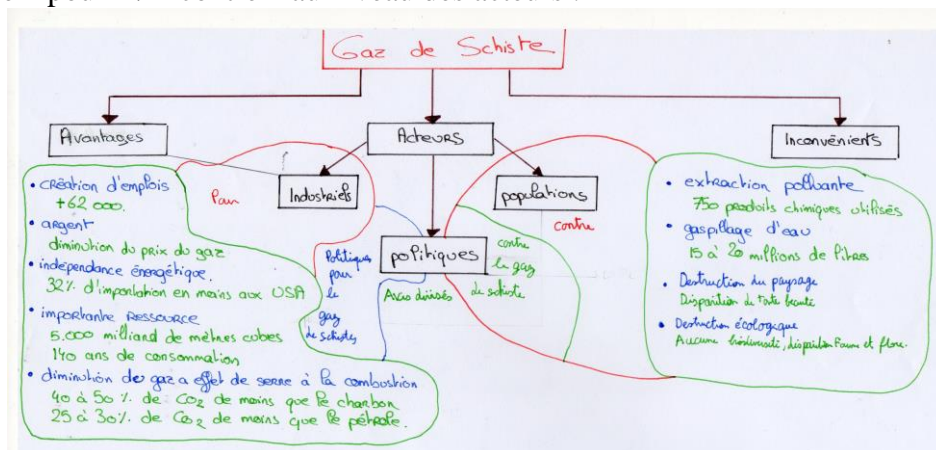 Gaz de Schiste
Avantages
Acteurs
Inconvénients
Industriels
populations
politiques
• création d'emplois
+62 000.
• argent
diminution du prix du gaz
• indépendance énergétique.
32% d'importation en moins aux USA
• importante Ressource
5.000 milliard de mètres cubes
140 ans de consommation
• diminution de gaz a effet de serre à la combustion
40 à 50 % de CO2 de moins que le charbon
25 à 30% de CO2 de moins que le pétrole.
Politiques
pour
le
gaz
de schistes
Avis divisés
contre
le gaz
de schiste
contre
• extraction polluante
750 produits chimiques utilisés
• gaspillage d'eau
15 à 20 millions de litres
• Destruction du paysage
Disparition de toute beauté
• Destruction écologique
Aucune biodiversité, disparition Faune et flore.